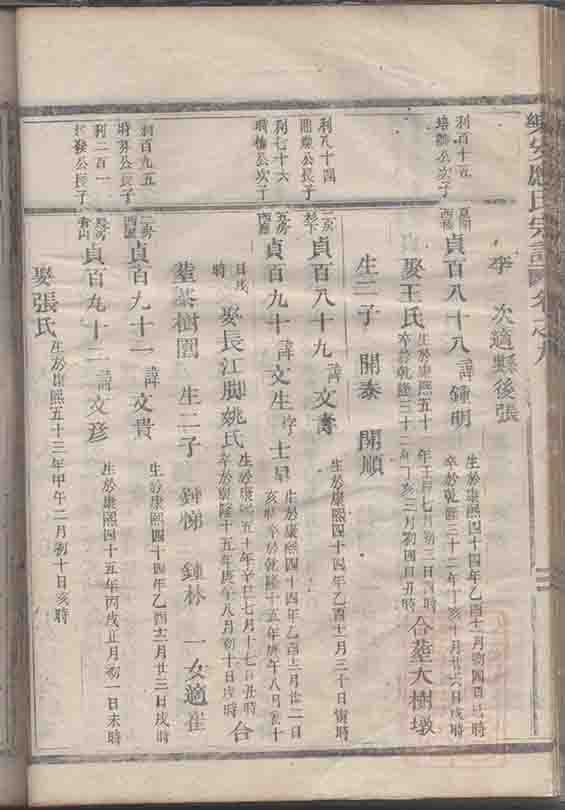 樂安應氏宗譜
利百十五
次子
李 次適縣後張
貞百八十八 諱鍾明 生於康熙四十四年乙酉
卒於乾隆三十二年丁亥十月廿六日戌時
娶王氏 生於康熙五十年
卒於乾隆三十二年丁亥三月初四日丑時
合葬大樹墩
生二子 開泰 開順
利八十四
公長子
貞百八十九 諱文
生於康熙四十四年乙酉十一月三十日寅時
利七十六
公次子
五房
貞百九十 諱文生 字士
生於康熙四十四年乙酉
亥時卒於乾隆十五年庚午八月
日戌時
娶長江脚姚氏 生於康熙五十年辛卯七月十七日丑時
卒於乾隆十五年庚午八月初十日戌時
合葬茶樹園 生二子 鍾悌 鍾林 一女適崔
利百九五
公長子
二房
貞百九十一 諱文貴
生於康熙四十四年乙酉十二月廿三日戌時
利二百一
公長子
青山
貞百九十二 諱文彥
生於康熙四十五年丙戌正月初一日未時
娶張氏 生於康熙五十三年甲午二月初十日亥時